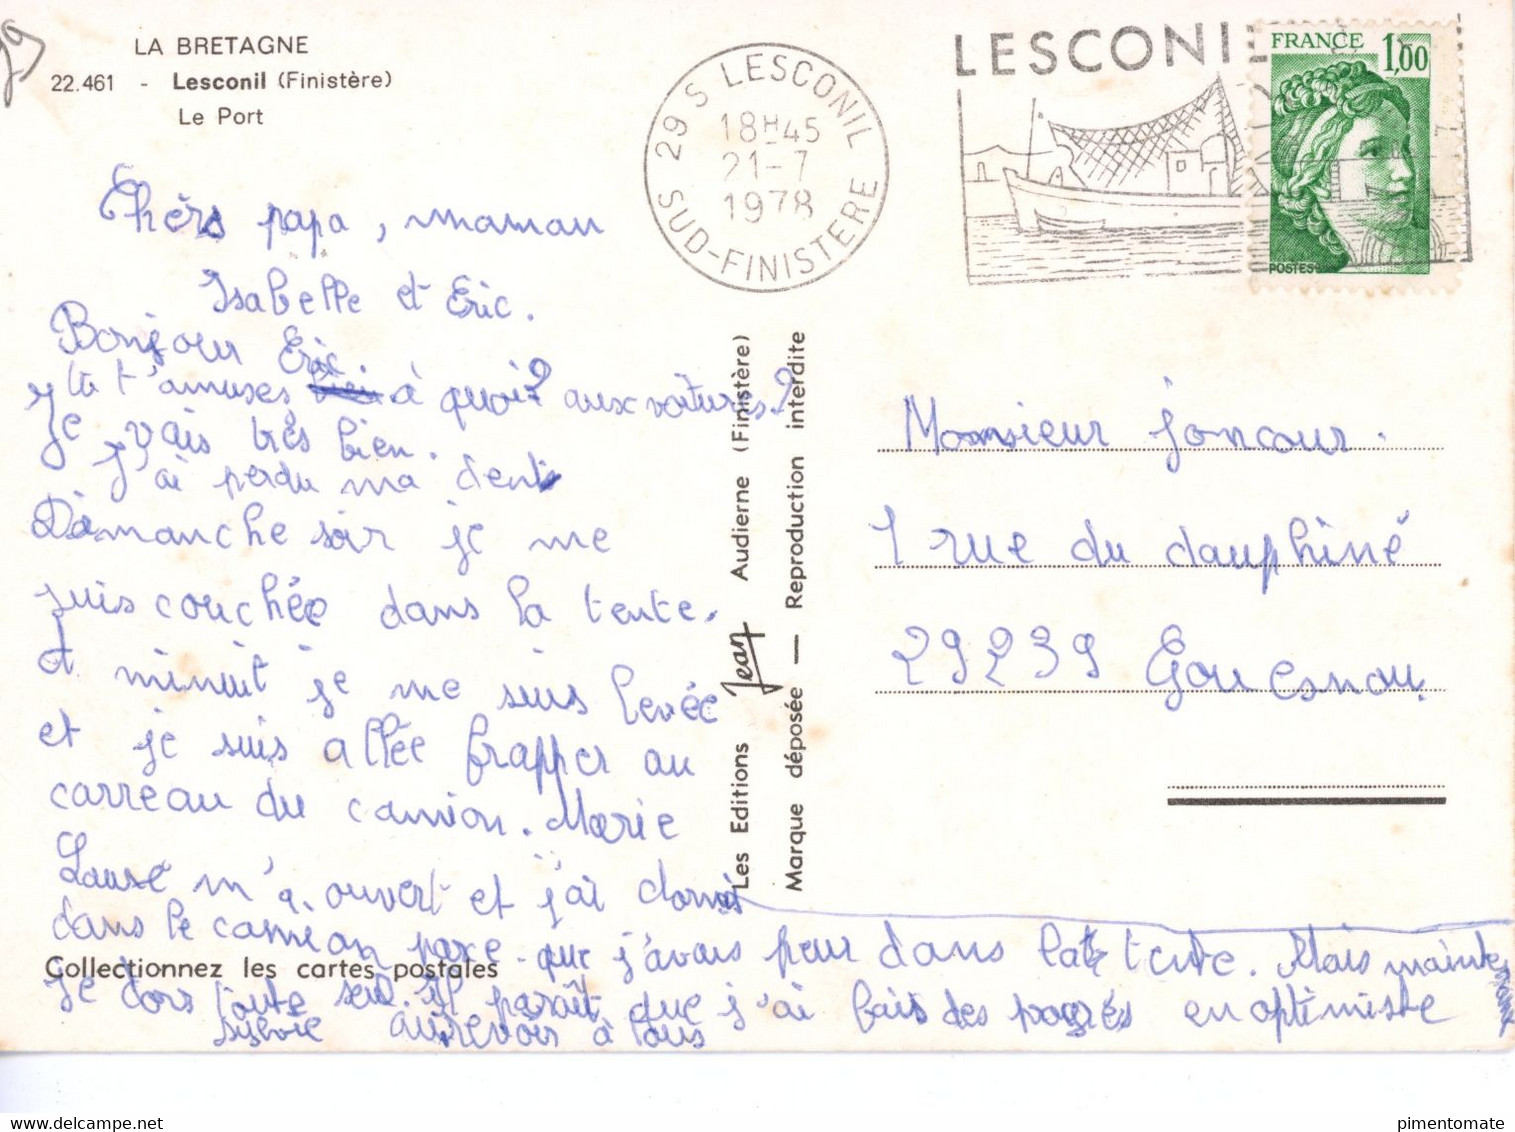 LA BRETAGNE
22.461 - Lesconil (Finistère)
Le Port
29 S LESCONIL
18H45
21-7
1978
SUD-FINISTERE
LESCONIL
FRANCE 1,00
POSTES
Chers papa, maman
Isabelle et Eric.
Bonjour Eric
tu t'amuses à quoi? aux voitures?
Je vais très bien.
J'ai perdu ma dent
Dimanche soir je me
suis couchée dans la tente.
A minuit je me suis levée
et je suis allée frapper au
carreau du camion. Marie
Lause m'a ouvert et j'ai dormi
dans le camion parce que j'avais peur dans la tente. Mais maintenant
Je dors toute seul. Il paraît que j'ai fais des progrés en optimiste
Sylvie aurevoir à tous
Collectionnez les cartes postales
Les Editions Jean Audierne (Finistère)
Marque déposée — Reproduction interdite
Monsieur joncour.
1 rue du dauphiné
29239 Gouesnou.
29
pimentomate